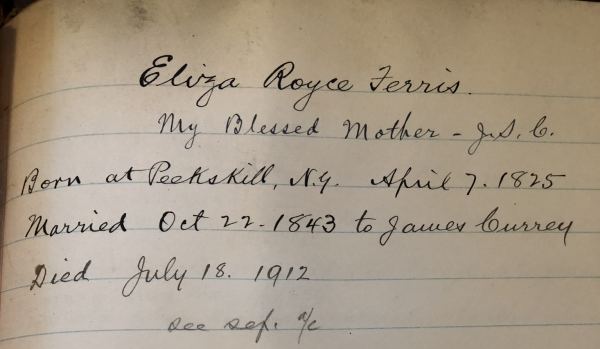 Eliza Royce Ferris.
My Blessed Mother - J.S.C.
Born at Peekskill, N.Y. April 7. 1825
Married Oct 22. 1843 to James Currey
Died July 18. 1912
see sep. a/c